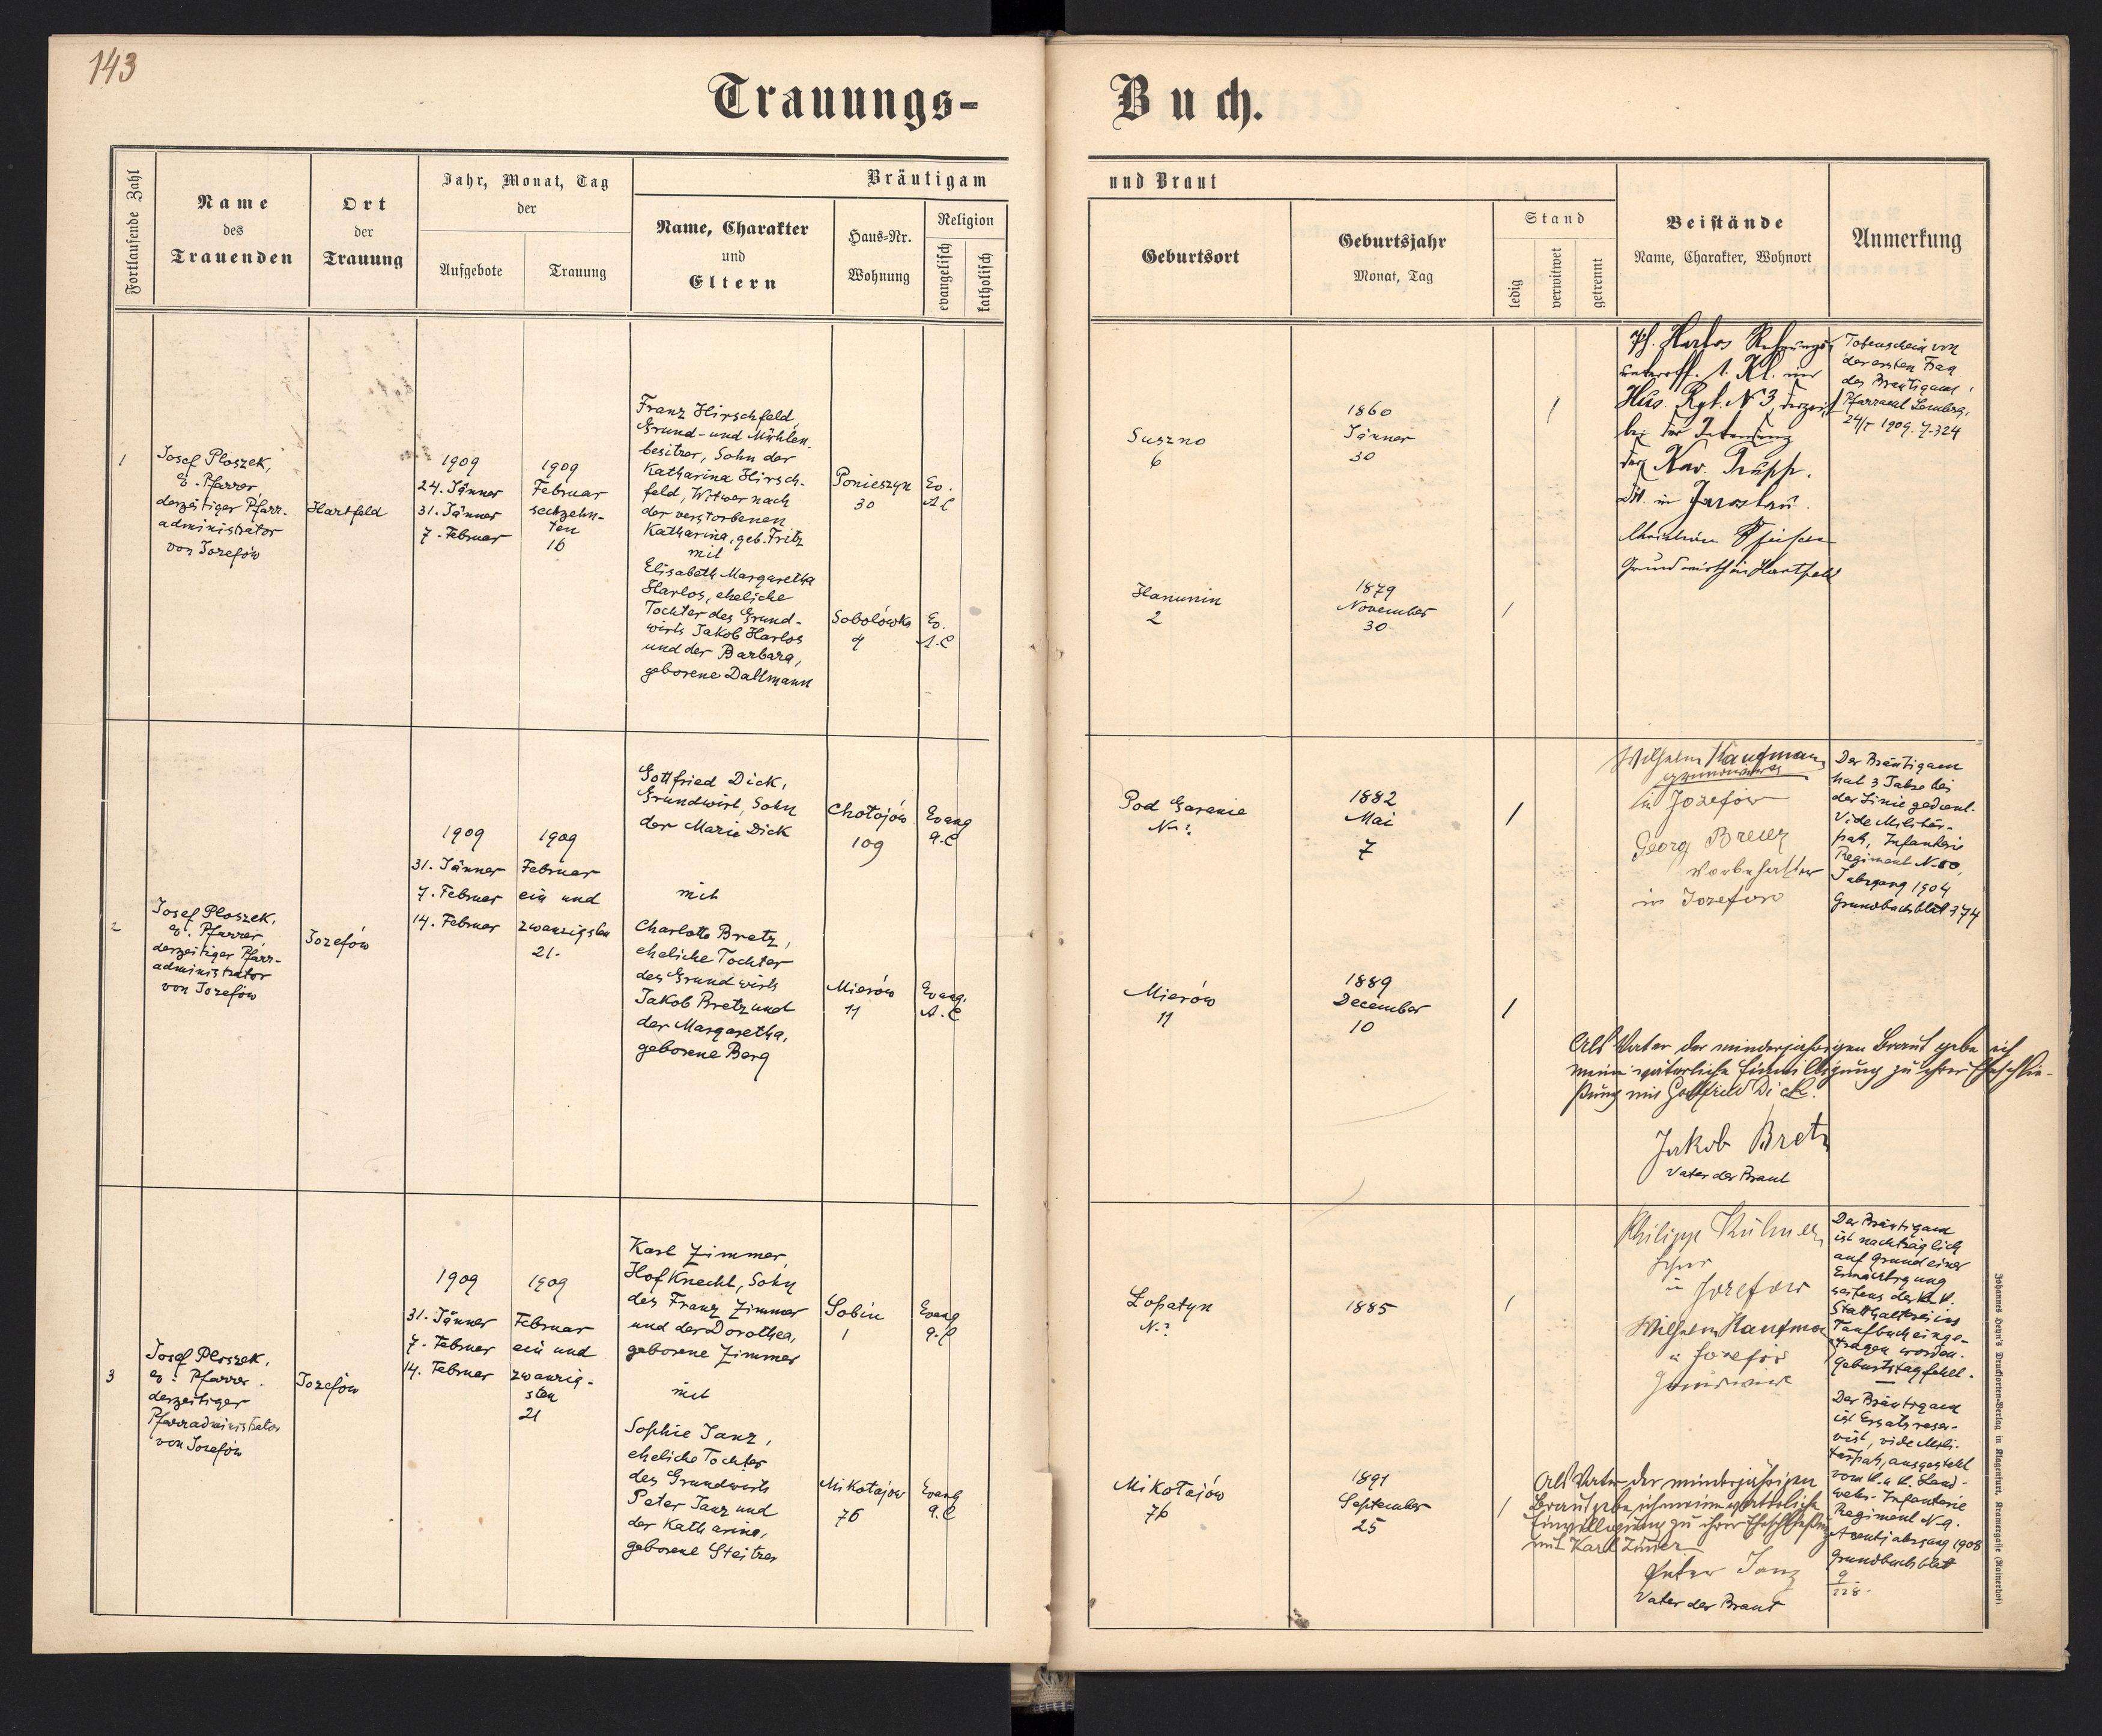 143
Trauungs-
Buch.
Fortlaufende Zahl
Name
des
Trauenden
Ort
der
Trauung
Jahr, Monat, Tag
der
Aufgebote
Trauung
Bräutigam
Name, Charakter
und
Eltern
Haus-Nr.
Wohnung
Religion
evangelisch
katholisch
und Braut
Geburtsort
Geburtsjahr
Monat, Tag
Stand
ledig
verwitwet
getrennt
Beistände
Name, Charakter, Wohnort
Anmerkung
1
Josef Ploszek,
ev. Pfarrer,
derzeitiger Pfarr-
administrator
von Josefów
Hartfeld
1909
24. Jänner
31. Jänner
7. Februar
1909
Februar
sechzehn-
ten
16
Franz Hirschfeld,
Grund- und Mühlen-
besitzer, Sohn der
Katharina Hirsch-
feld, Witwer nach
der verstorbenen
Katharina, geb. Fritz
mit
Elisabeth Margaretha
Harlos, eheliche
Tochter des Grund-
wirts Jakob Harlos
und der Barbara,
geborene Dallmann
Ponieszyn
30
Ev.
A.C
Sobolówka
4
Ev.
A.C
Suszno
6
1860
Jänner
30
/
Hanunin
2
1879
November
30
/
Harlos
unteroff. 1. Kl. im
Hus. Rgt. N 3, derzeit
bei der Intendanz
der Kav. Trupp.
Div. in Jaroslau.
Christian
Grundwirth in Hartfeld
Totenschein von
der ersten Frau
des Bräutigams,
Pfarramt Lemberg,
24/I 1909. Z. 324
2
Josef Ploszek,
ev. Pfarrer,
derzeitiger Pfarr-
administrator
von Josefów
Josefów
1909
31. Jänner
7. Februar
14. Februar
1909
Februar
ein und
zwanzigsten
21.
Gottfried Dick,
Grundwirt, Sohn
der Marie Dick
mit
Charlotte Bretz,
eheliche Tochter
des Grundwirts
Jakob Bretz und
der Margaretha,
geborene Berg
Chołojów
109
Evang
A.C
Mierów
11
Evang.
A.C
Pod Garanie
No ?
1882
Mai
7
/
Mierów
11
1889
December
10
/
Wilhelm Kaufmann
Grundwirth
in Josefów
Georg Breuer
Vorbeschatter
in Josefow
Der Bräutigam
hat 3 Jahre bei
der Linie gedient.
Vide Militär-
paß, Infanterie
Regiment N. 80,
Jahrgang 1904
Grundbuchsblatt 374
Als Vater der minderjährigen Braut gebe ich
meine väterliche Einwilligung zu ihrer Eheschlie-
ßung mit Gottfried Dick.
Jakob Bretz
Vater der Braut
3
Josef Ploszek,
ev. Pfarrer,
derzeitiger
Pfarradministrator
von Josefów
Josefów
1909
31. Jänner
7. Februar
14. Februar
1909
Februar
ein und
zwanzig-
sten
21
Karl Zimmer,
Hof Knecht, Sohn
des Franz Zimmer
und der Dorothea,
geborene Zimmer
mit
Sophie Janz,
eheliche Tochter
des Grundwirts
Peter Janz und
der Katharina,
geborene Steitzer
Sobin
1
Evang
A.C
Mikołajów
76
Evang
A.C
Łopatyn
N. ?
1885
/
Mikołajów
76
1891
September
25
/
Philipp Kühner
Lehrer
in Josefow
Wilhelm Kaufman
in Josefów
Grundwirt
Der Bräutigam
ist nachträglich
auf Grund einer
Ermächtigung
seitens der k.k.
Statthalterei ins
Taufbuch einge-
tragen worden.
Geburtstag fehlt.
Der Bräutigam
ist Ersatzreser-
vist, vide Mili-
tärpaß, ausgestellt
vom k. u. k. Land-
wehr-Infanterie
Regiment N. 9.
Assentjahrgang 1908
Grundbuchsblatt
9
228.
Als Vater der minderjährigen
Braut gebe ich meine väterliche
Einwilligung zu ihrer Eheschließung
mit Karl Zimmer
Peter Janz
Vater der Braut
Johannes Heyn's Drucksorten-Verlag in Klagenfurt, Kramergasse (Rainerhof)